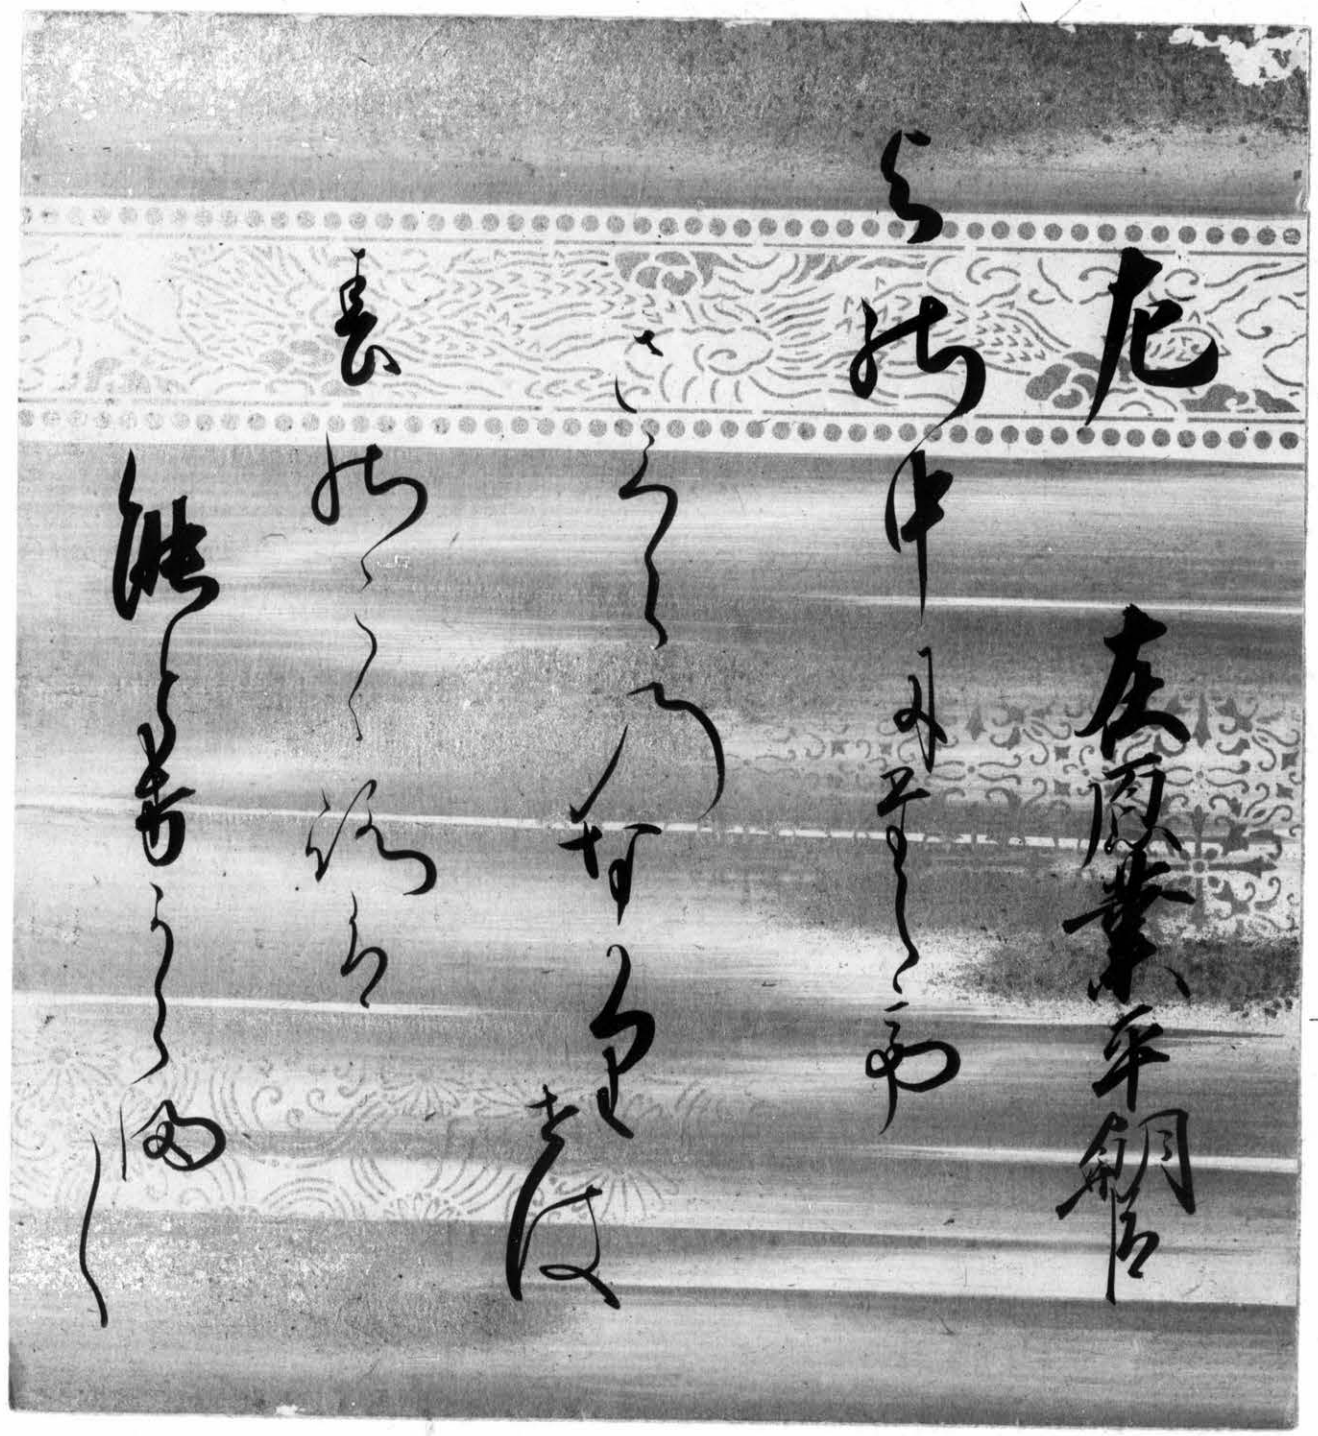 左　在原業平朝臣
よの中にたえて
さくらのなかりせは
春のこゝろは
のとけからまし